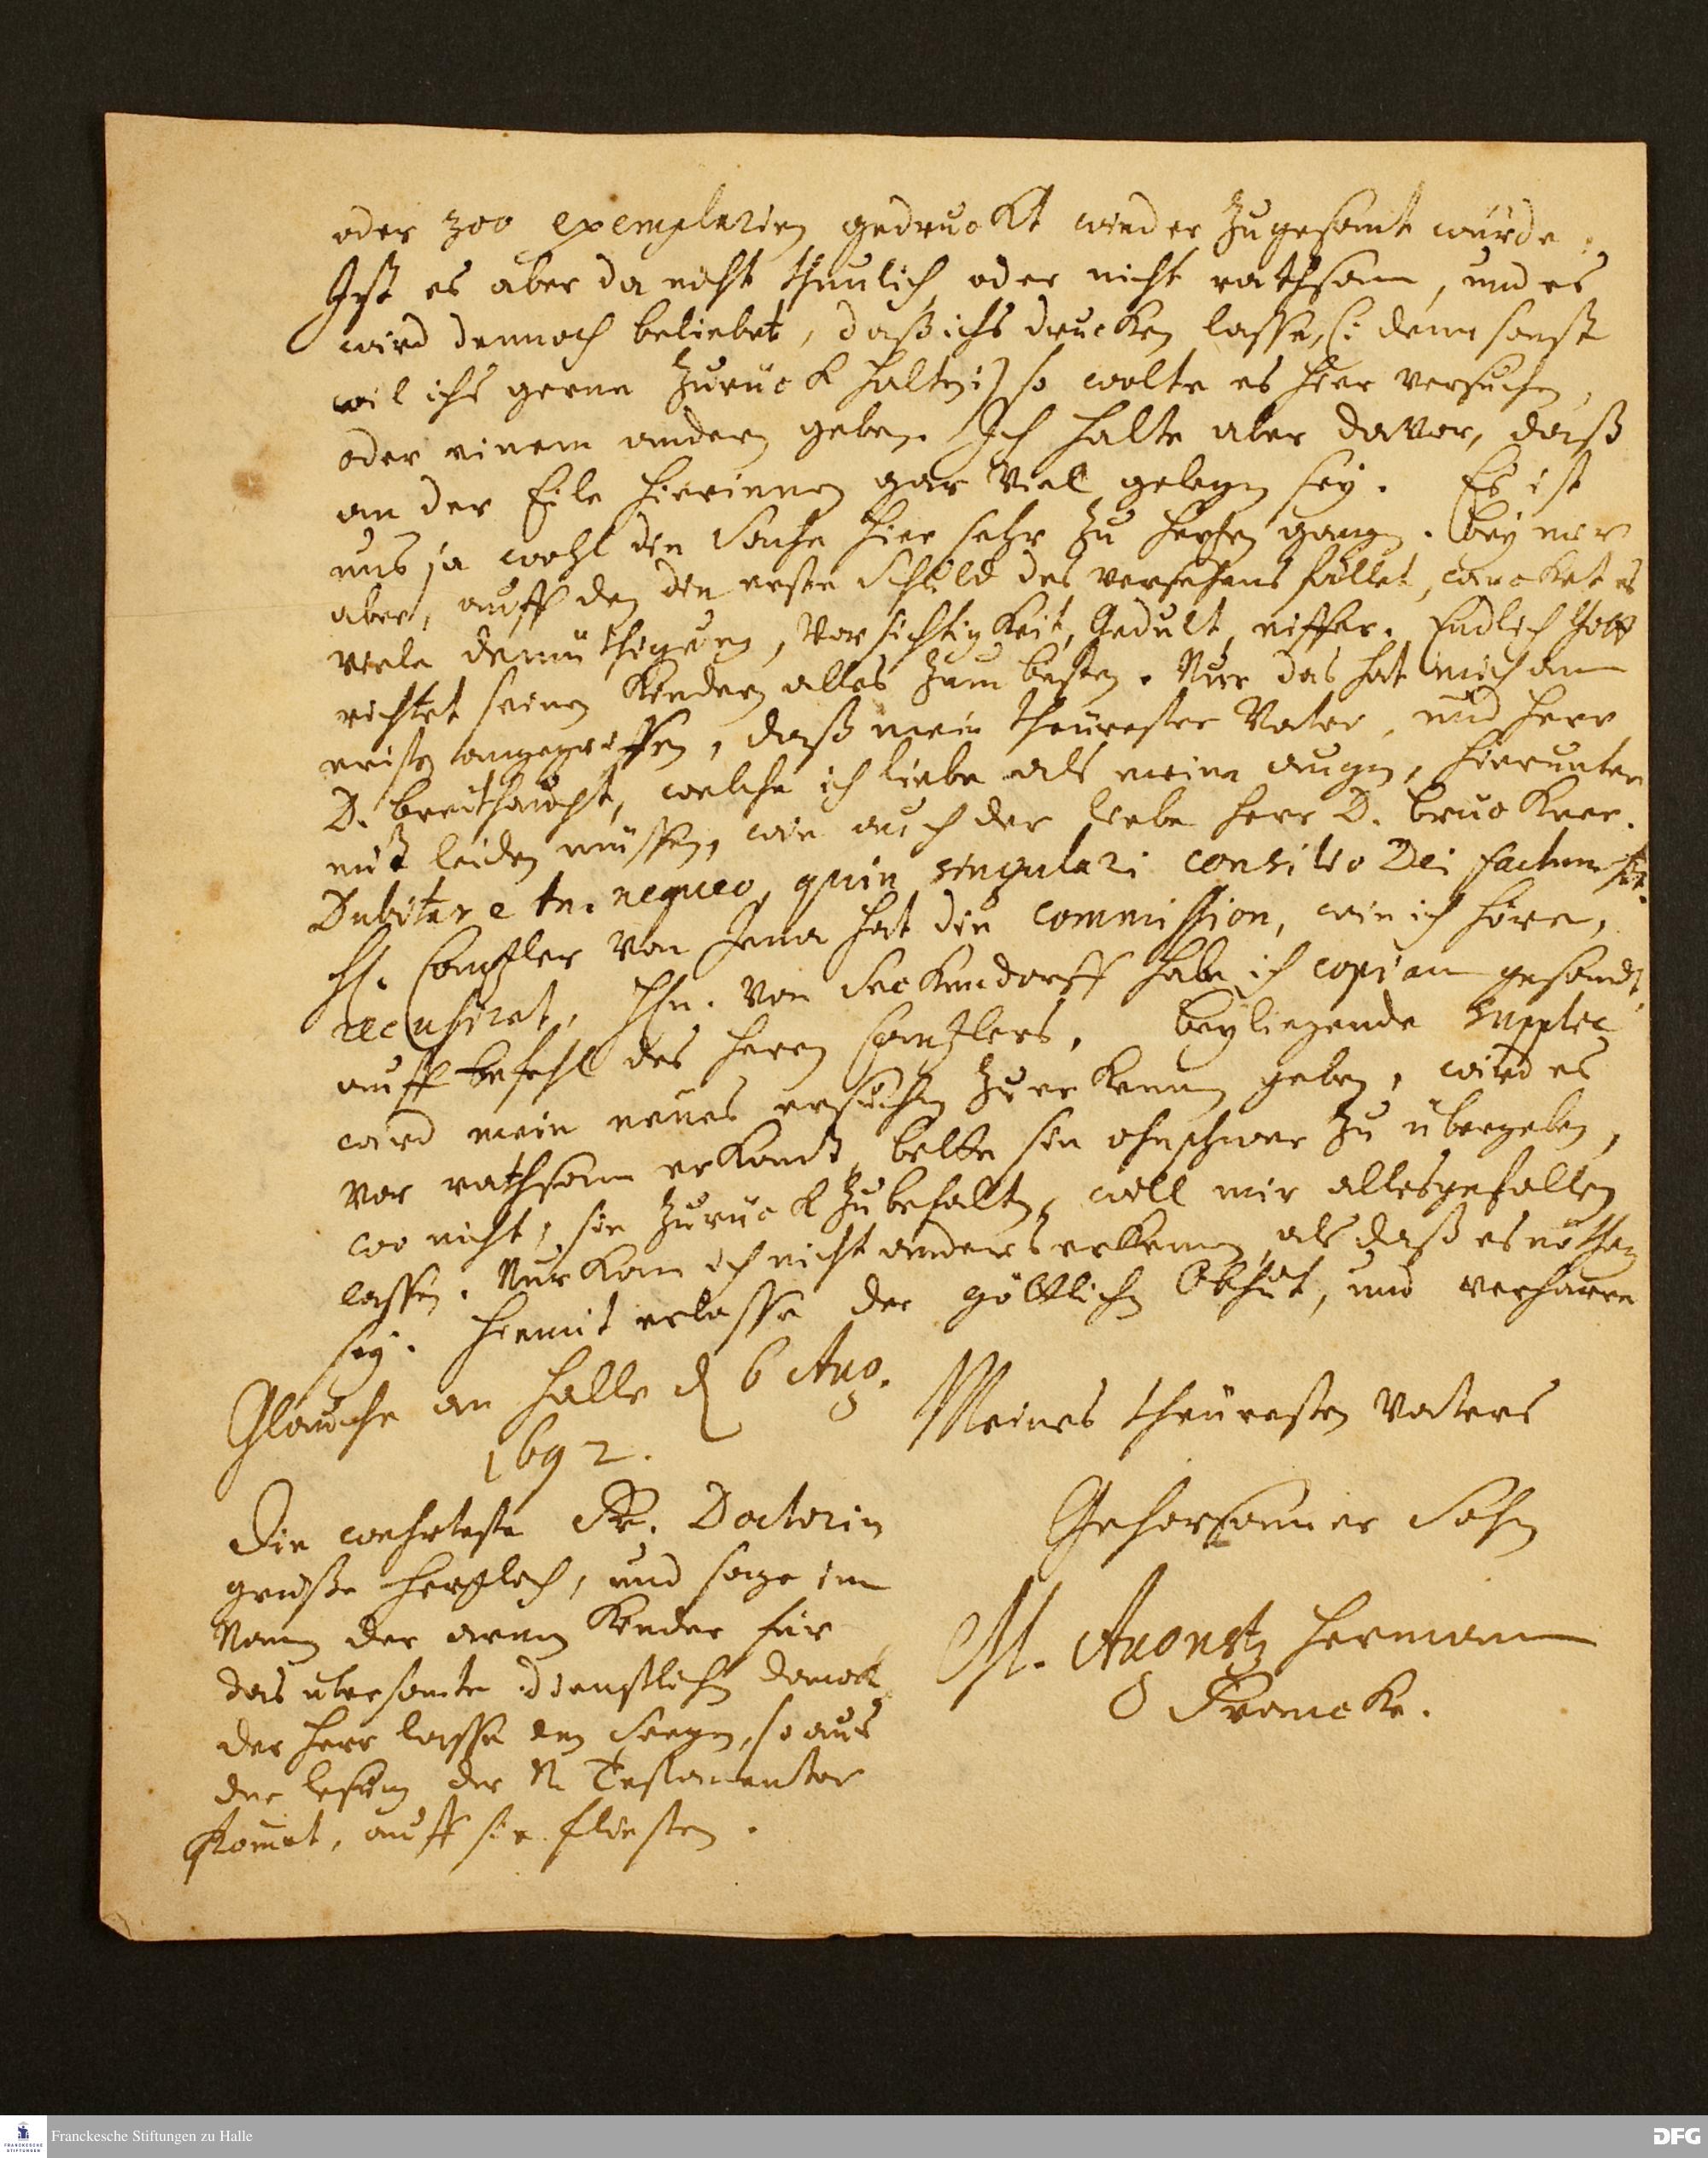 oder 300 exemplarien gedruckt wieder zugesamt würde.
Ist es aber da nicht thunlich oder nicht rathsam, und es
wird dennoch beliebet, daß ichs drucken lasse, (: denn sonst
wil ichs gerne zurück halten :) so wolte es hier versuchen,
oder einem andern geben. Ich halte aber davor, daß
an der Eile hierinnen gar viel gelegen sey. Es ist
uns ja wohl die Sache hier sehr zu hertzen gangen. bey mir
aber, auff den die erste Schuld des versehens fället, wircket es
viele demüthigung, Vorsichtigkeit, Gedult, eiffer. Endlich Gott
richtet seinen Kindern alles zum besten. Nur das hat mich am
meisten angegriffen, daß mein theurester Vater, und Herr
D. Breithaupt, welche ich liebe als meine augen, hierunter
mit leiden müssen, wie auch der liebe Herr D. Bruckner.
Dubitare tn. nequeo, quin singulari consilio Dei factum sit.
H. Cantzler von Jena hat die commission, wie ich höre,
recusiret, Hn. von Seckendorff habe ich copiam gesandt
auff befehl des Herrn Cantzlers. Beyliegende Supplic
wird mein neues ersuchen zu erkennen geben, wird es
vor rathsam erkandt, bitte sie ohnschwer zu übergeben,
wo nicht, sie zurück zubehalten, will mir alles gefallen
lassen. Nur kan ich nicht anders erkennen, als daß es nöthig
sey. Hiemit erlasse der göttlichen Obhut, und verharre
Glaucha an Halle d 6 Aug.
1692.
Meines theuresten Vaters
Gehorsamer Sohn
M. Augustg Hermann
Francke.
Die wehrteste Fr. Doctorin
grüße hertzlich, und sage im
Namen der armen Kinder für
das übersamte dienstlichen danck
der Herr lasse den Seegen, so aus
der lesung der N Testamenter
komet, auff sie fliessen.
Franckesche Stiftungen zu Halle
DFG
FRANCKESCHE
STIFTUNGEN